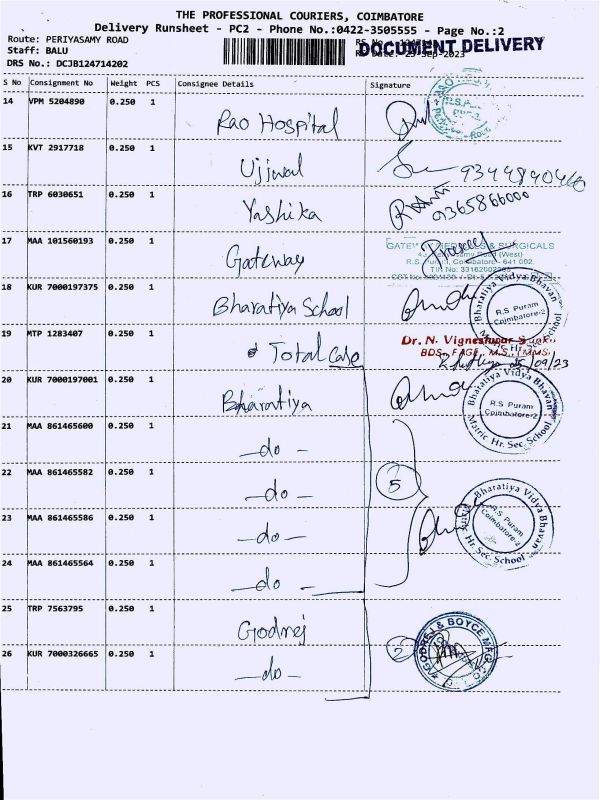 THE PROFESSIONAL COURIERS, COIMBATORE
Delivery Runsheet - PC2 - Phone No.:0422-3505555 - Page No.:2
Route: PERIYASAMY ROAD
Staff: BALU
DRS No.: DCJB124714202
DOCUMENT DELIVERY
Date: 25-Sep-2023
S No Consignment No Weight PCS Consignee Details Signature
14 VPM 5204890 0.250 1 Rao Hospital
15 KVT 2917718 0.250 1 Ujjwal
16 TRP 6030651 0.250 1 Yashika 9365866000
17 MAA 101560193 0.250 1 Gateway
GATEWAY & SURGICALS
(West)
Coimbatore - 641 002.
18 KUR 7000197375 0.250 1 Bharatiya School
Bharatiya Vidya Bhavan
R.S Puram
Coimbatore-2
Matric Hr. Sec. School
19 MTP 1283407 0.250 1 Total Case
Dr. N. Vigneshwar
BDS., FAGE., M.S., MMS.
25/09/23
20 KUR 7000197001 0.250 1 Bharatiya
Bharatiya Vidya Bhavan
R.S Puram
Coimbatore-2
Matric Hr. Sec. School
21 MAA 861465600 0.250 1 -do-
22 MAA 861465582 0.250 1 -do- 5
23 MAA 861465586 0.250 1 -do-
Bharatiya Vidya Bhavan
R.S Puram
Coimbatore-2
Hr. Sec. School
24 MAA 861465564 0.250 1 -do-
25 TRP 7563795 0.250 1 Godrej
26 KUR 7000326665 0.250 1 -do- 2
GODREJ & BOYCE MFG